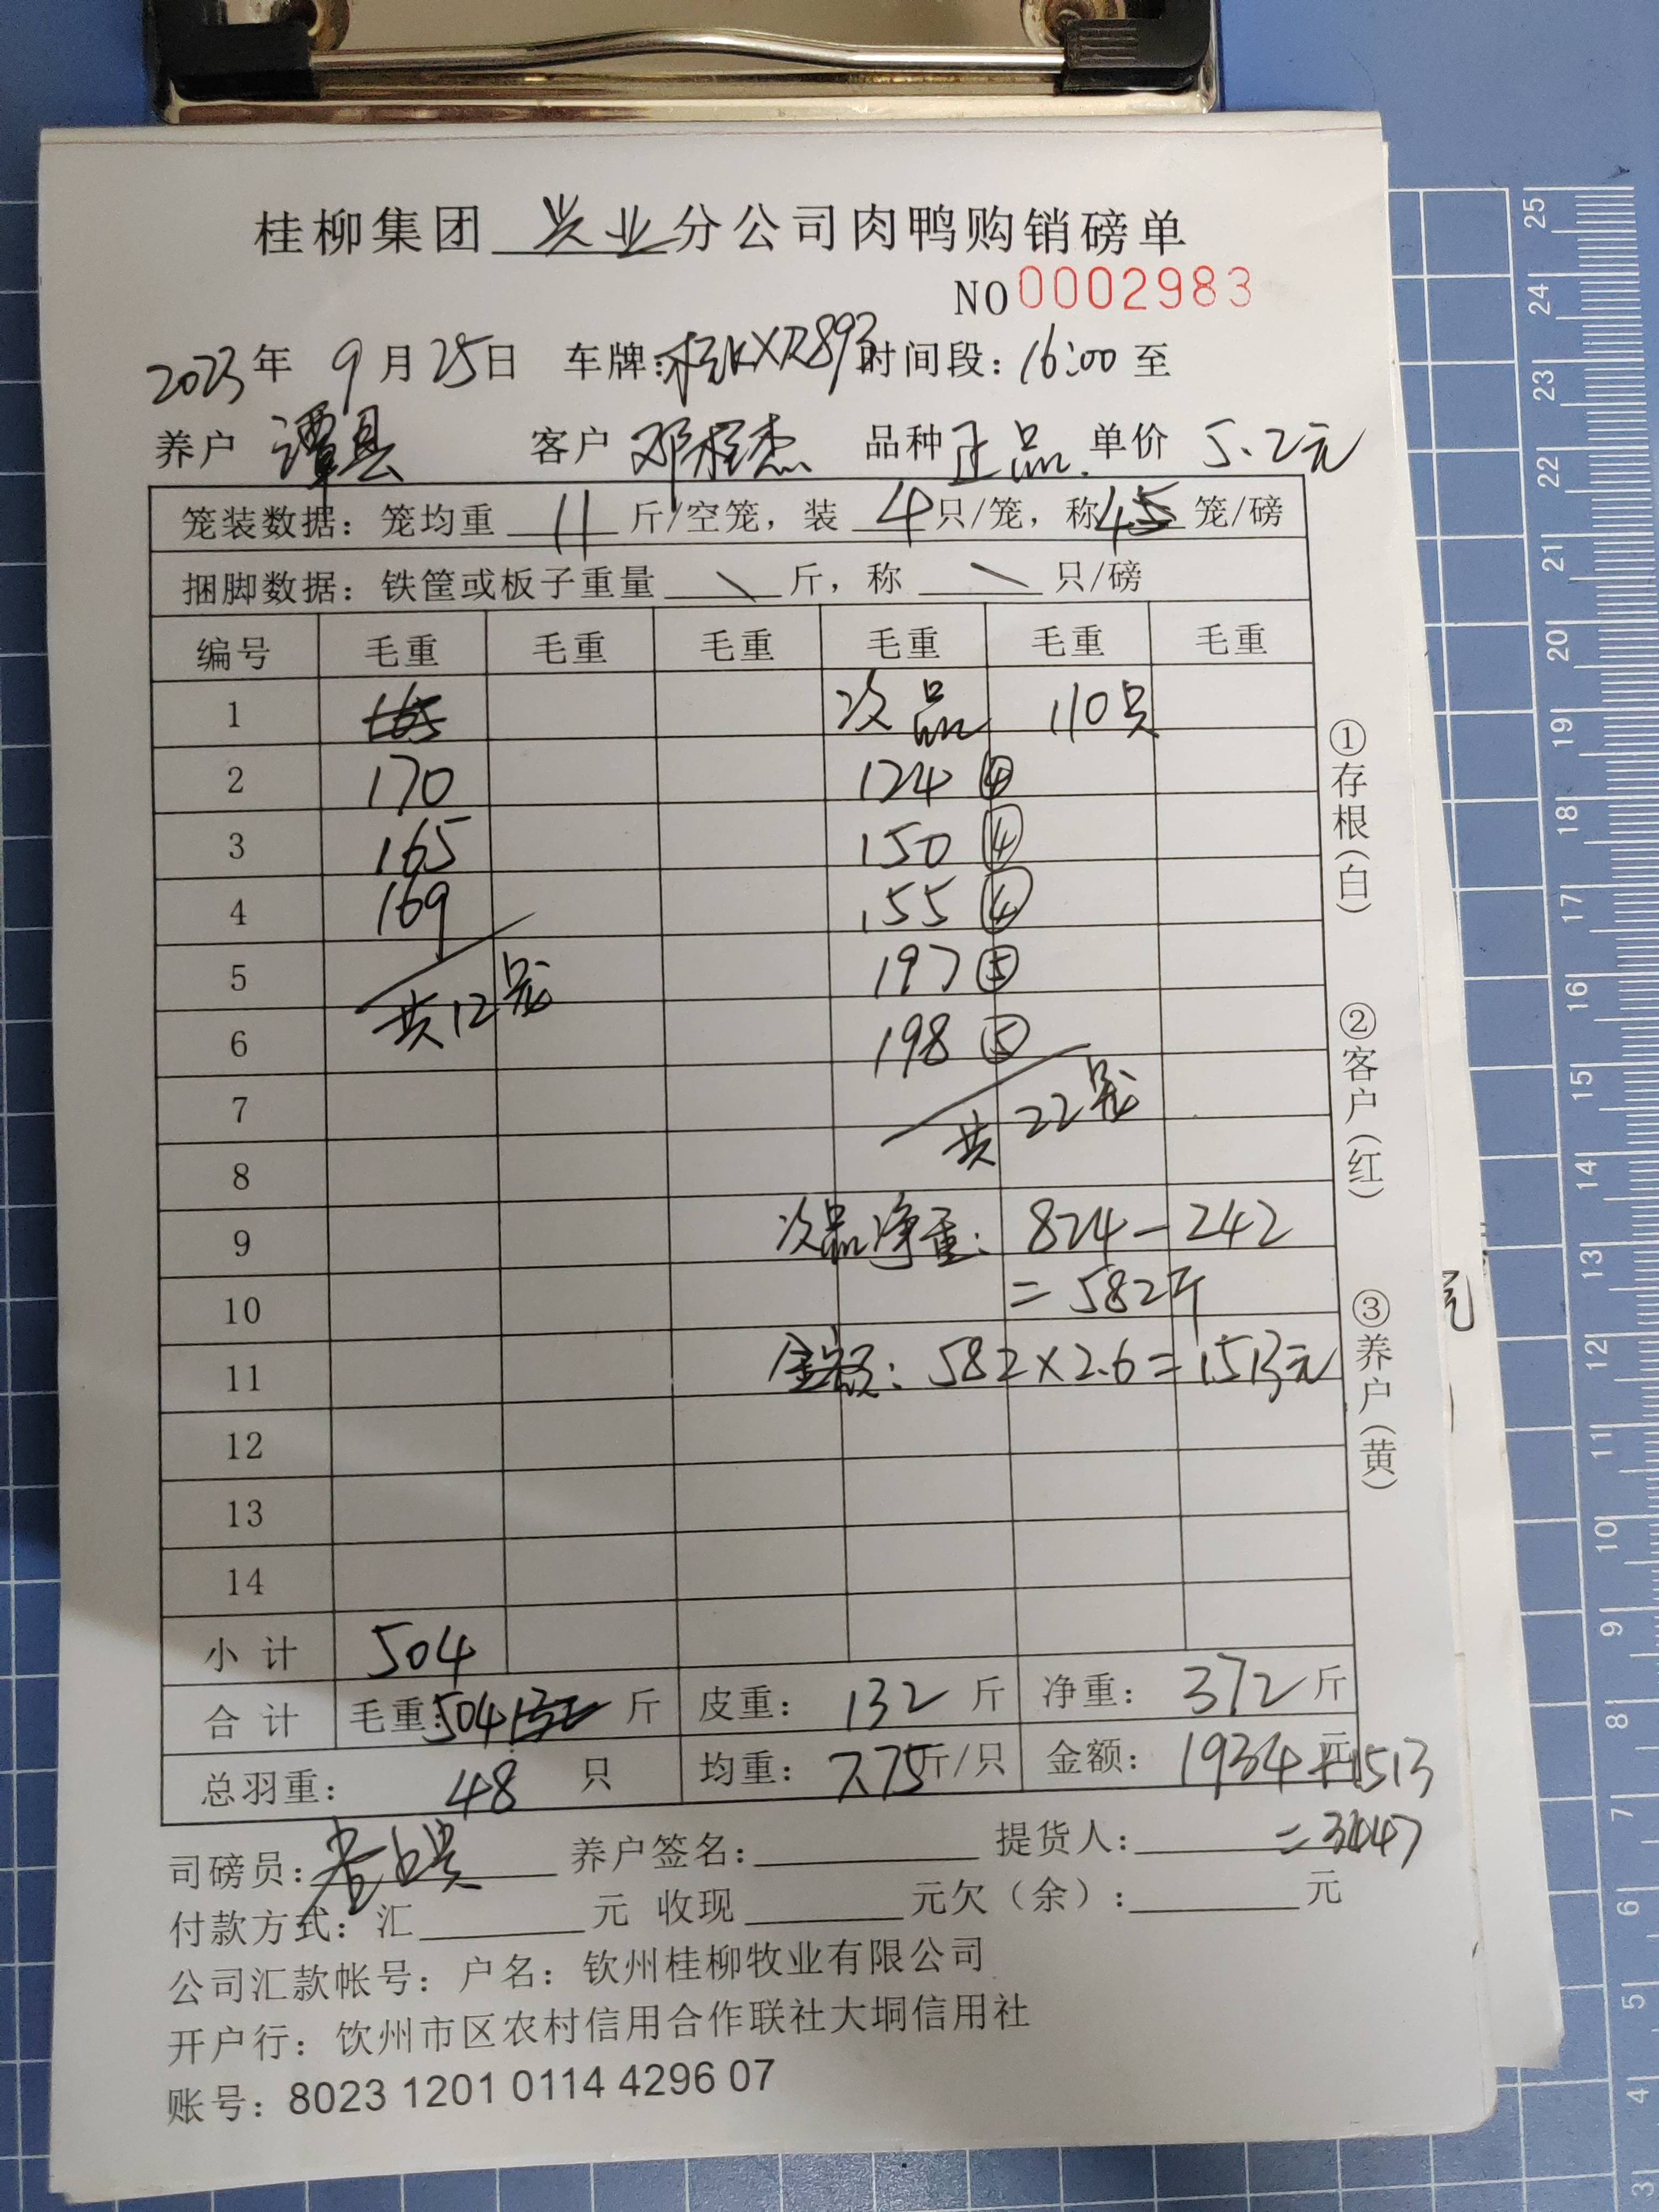 桂柳集团 兴业 分公司肉鸭购销磅单
NO 0002983
2023年 9月25日 车牌:桂KXR893 时间段:16:00至
养户 谭县 客户 邓桂杰 品种 正品. 单价 5.2元
笼装数据：笼均重 11 斤/空笼，装 4 只/笼，称 45 笼/磅
捆脚数据：铁筐或板子重量 \ 斤，称 \ 只/磅
编号 毛重 毛重 毛重 毛重 毛重 毛重
1 165 次品 110只
2 170 124 ④
3 165 150 ④
4 169 155 ④
5 197 ⑤
共12笼
6 198 ⑤
7
共22笼
8
9 次品净重: 824-242
10 =582斤
11 金额: 582×2.6=1513元
12
13
14
小计 504
合计 毛重:504 132 斤 皮重: 132 斤 净重: 372 斤
总羽重: 48 只 均重: 7.75斤/只 金额: 1934 元+1513
=3447
司磅员: 养户签名: 提货人:
付款方式: 汇 元 收现 元欠（余）: 元
公司汇款帐号: 户名: 钦州桂柳牧业有限公司
开户行: 钦州市区农村信用合作联社大垌信用社
账号: 8023 1201 0114 4296 07
①存根（白）
②客户（红）
③养户（黄）
25
24
23
22
21
20
19
18
17
16
15
14
13
12
11
10
9
8
7
6
5
4
3